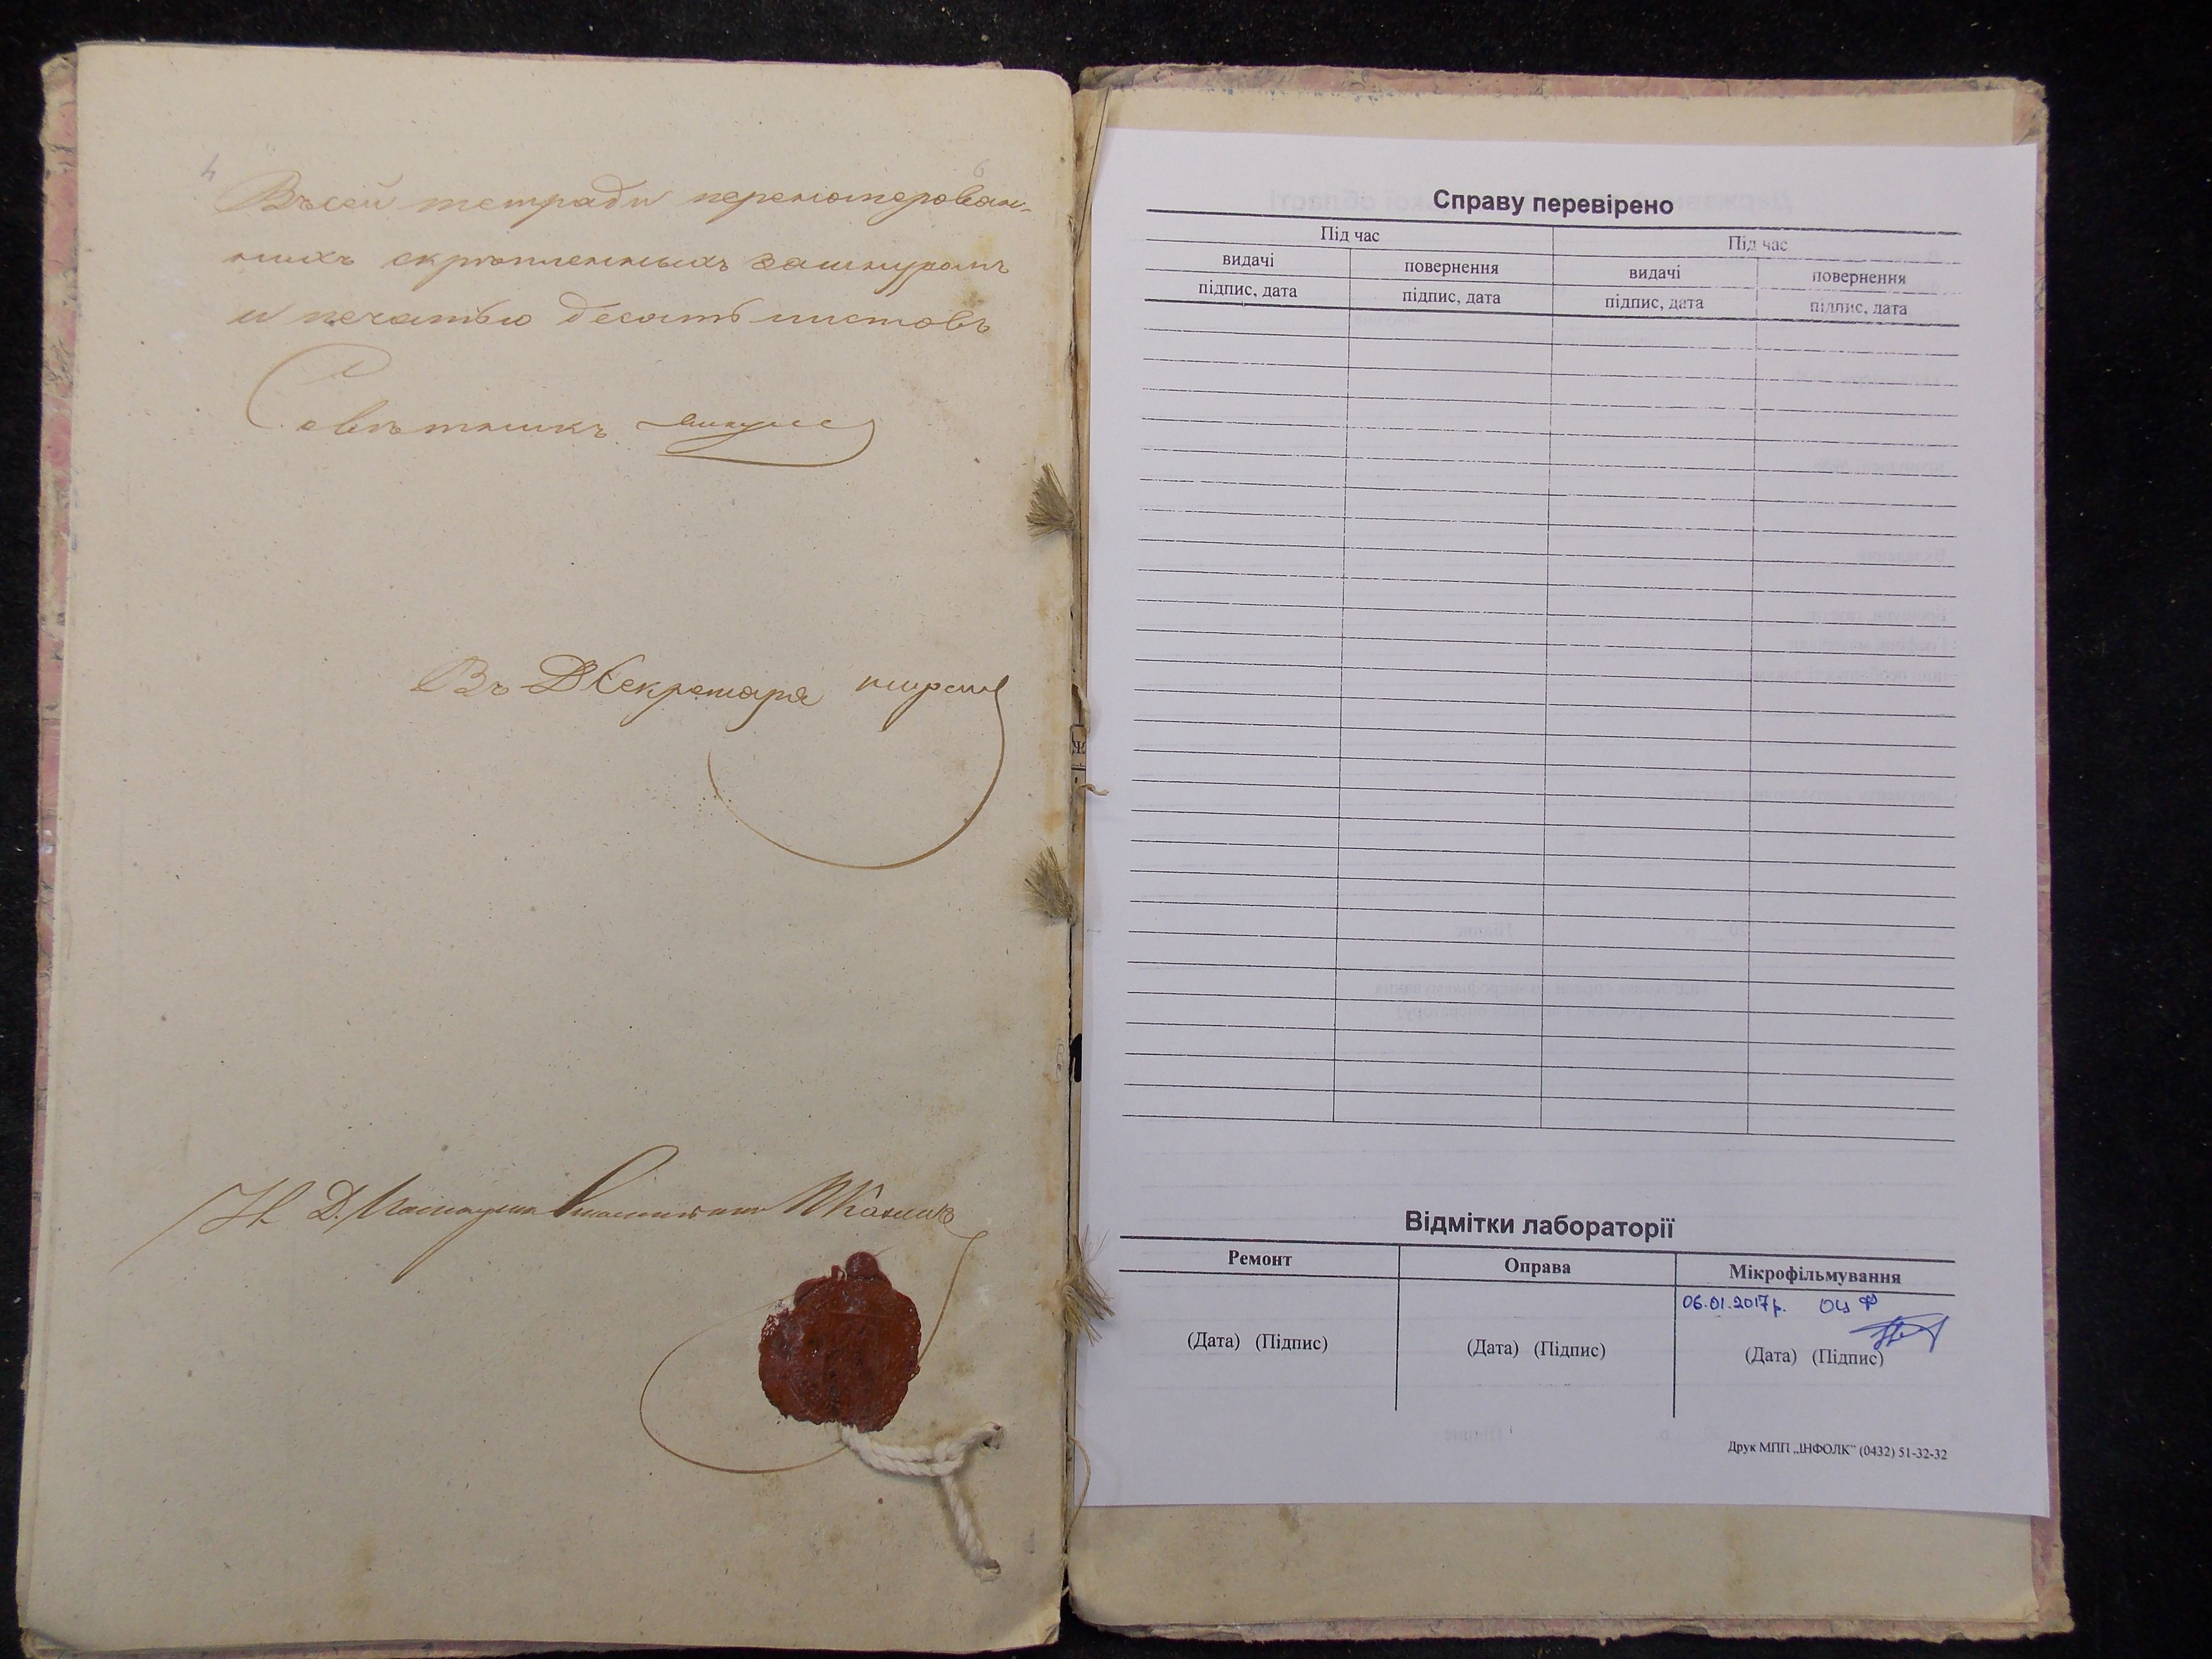 Въ сей тетради перенумерован-
ныхъ скрѣпленныхъ за шнуромъ
и печатью десять листовъ
Совѣтникъ
Въ Д Секретаря
И Д.
Справу перевірено
Під час Під час
видачі повернення видачі повернення
підпис, дата підпис, дата підпис, дата підпис, дата
Відмітки лабораторії
Ремонт Оправа Мікрофільмування
06.01.2017р.
(Дата) (Підпис) (Дата) (Підпис) (Дата) (Підпис)
Друк МПП „ІНФОЛК” (0432) 51-32-32